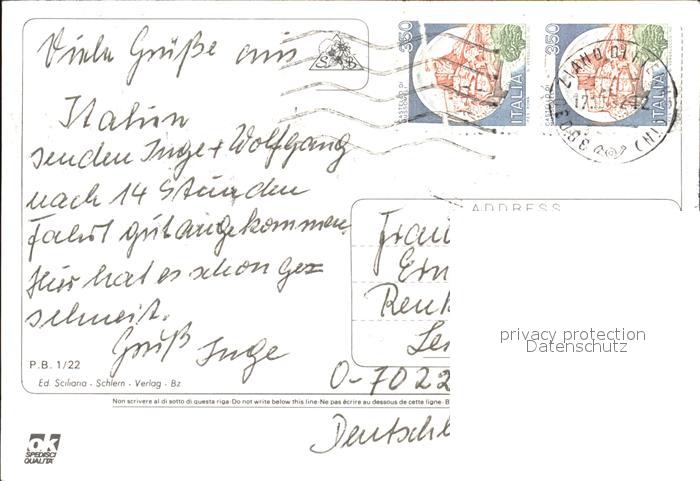 Viele Grüße aus
Italien
senden Inge + Wolfgang
nach 14 Stunden
Fahrt gut angekommen.
Hier hat es schon ges=
schneit.
Gruß Inge
P.B. 1/22
Ed. Sciliana - Schlern - Verlag - Bz
S B
350
ITALIA
350
ITALIA
ZIANO DI
38030
(TN)
ADDRESS
Frau
Renk
O-7022
Deutschl
privacy protection
Datenschutz
Non scrivere al di sotto di questa riga - Do not write below this line - Ne pas écrire au dessous de cette ligne - B
ok
SPEDISCI
QUALITÀ